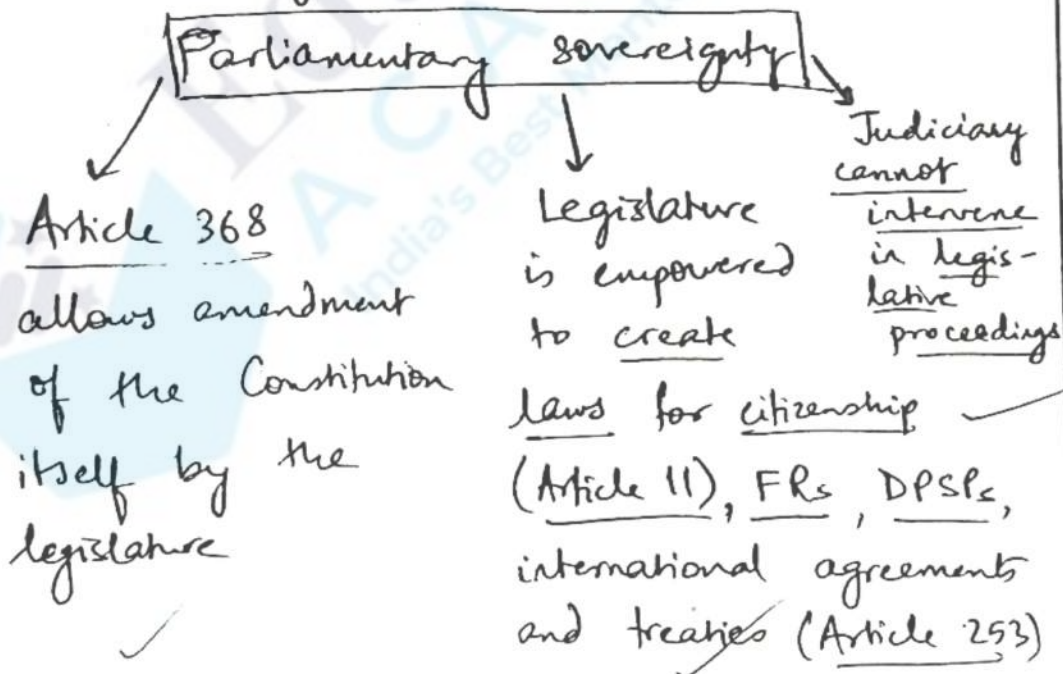 Parliamentary sovereignty
Article 368
allows amendment
of the Constitution
itself by the
legislature
Legislature
is empowered
to create
laws for citizenship
(Article 11), FRs, DPSPs,
international agreements
and treaties (Article 253)
Judiciary
cannot
intervene
in legis-
lative
proceedings
A C A
India's Best